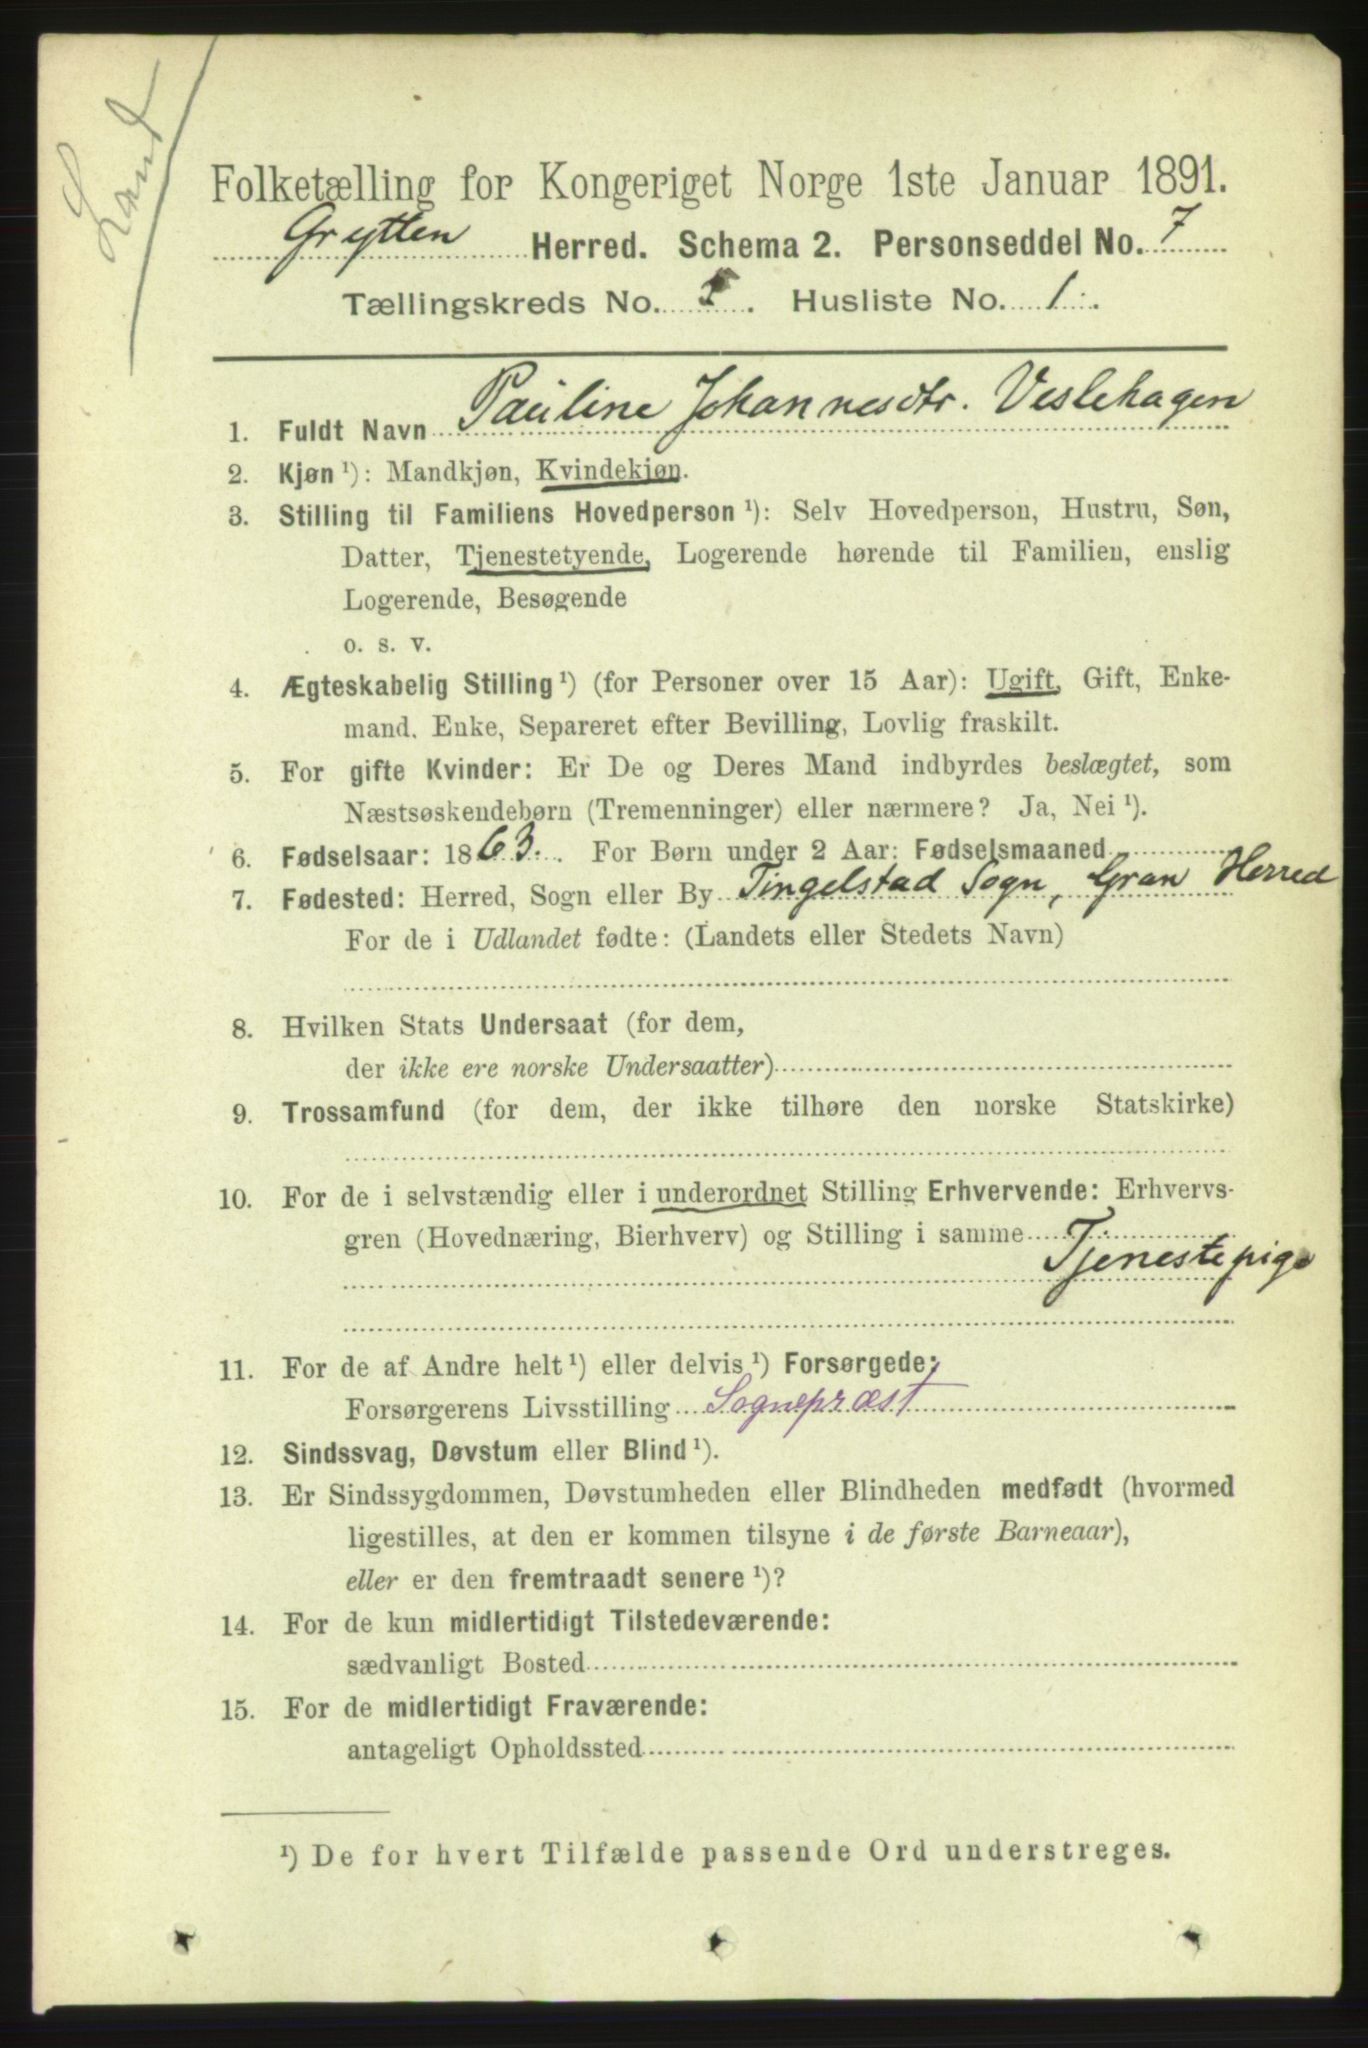 Land
Folketælling for Kongeriget Norge 1ste Januar 1891.
Grytten Herred. Schema 2. Personseddel No. 7
Tællingskreds No. . Husliste No. 1.
1. Fuldt Navn Pauline Johannesdtr. Veslehagen
2. Kjøn ¹): Mandkjøn, Kvindekjøn.
3. Stilling til Familiens Hovedperson ¹): Selv Hovedperson, Hustru, Søn,
Datter, Tjenestetyende, Logerende hørende til Familien, enslig
Logerende, Besøgende
o. s. v.
4. Ægteskabelig Stilling ¹) (for Personer over 15 Aar): Ugift, Gift, Enke-
mand, Enke, Separeret efter Bevilling, Lovlig fraskilt.
5. For gifte Kvinder: Er De og Deres Mand indbyrdes beslægtet, som
Næstsøskendebørn (Tremenninger) eller nærmere? Ja, Nei ¹).
6. Fødselsaar: 1863. For Børn under 2 Aar: Fødselsmaaned
7. Fødested: Herred, Sogn eller By Tingelstad Sogn, Gran Herred
For de i Udlandet fødte: (Landets eller Stedets Navn)
8. Hvilken Stats Undersaat (for dem,
der ikke ere norske Undersaatter)
9. Trossamfund (for dem, der ikke tilhøre den norske Statskirke)
10. For de i selvstændig eller i underordnet Stilling Erhvervende: Erhvervs-
gren (Hovednæring, Bierhverv) og Stilling i samme
Tjenestepige
11. For de af Andre helt ¹) eller delvis ¹) Forsørgede:
Forsørgerens Livsstilling Sognepræst
12. Sindssvag, Døvstum eller Blind ¹).
13. Er Sindssygdommen, Døvstumheden eller Blindheden medfødt (hvormed
ligestilles, at den er kommen tilsyne i de første Barneaar),
eller er den fremtraadt senere ¹)?
14. For de kun midlertidigt Tilstedeværende:
sædvanligt Bosted
15. For de midlertidigt Fraværende:
antageligt Opholdssted
¹) De for hvert Tilfælde passende Ord understreges.